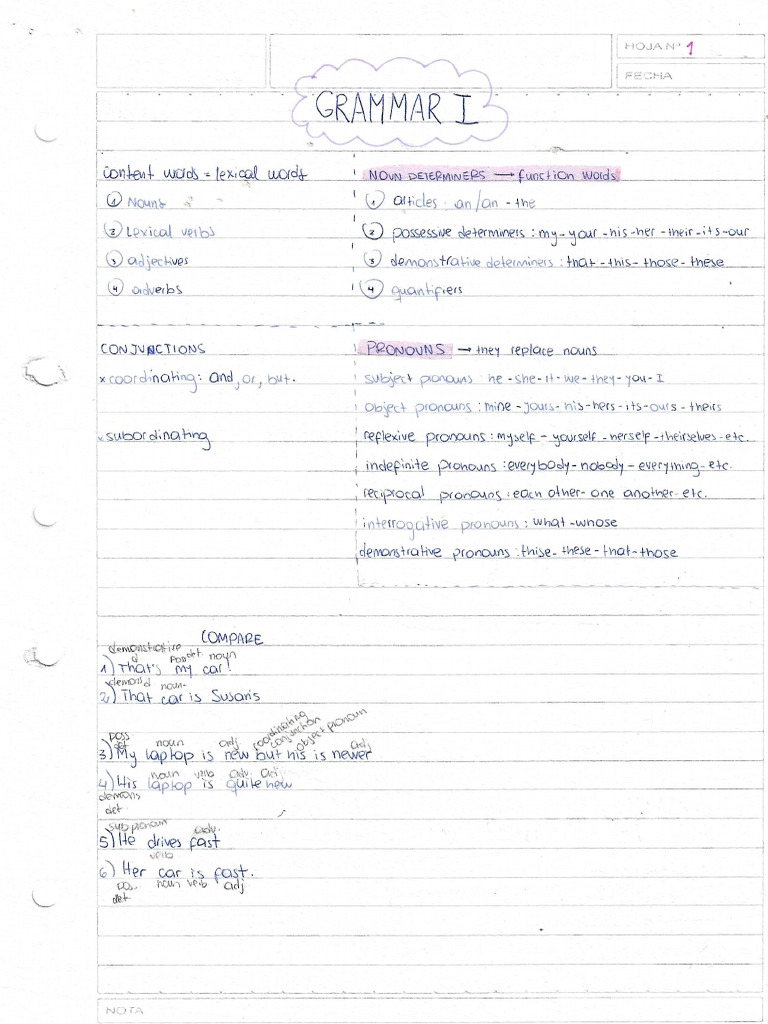 HOJA Nº 1
FECHA
GRAMMAR I
content words = lexical words
① Nouns
② Lexical verbs
③ adjectives
④ adverbs
NOUN DETERMINERS → function words
① articles: an/an - the
② possessive determiners: my - your - his - her - their - its - our
③ demonstrative determiners: that - this - those - these
④ quantifiers
CONJUNCTIONS
x coordinating: and, or, but.
x subordinating
PRONOUNS → they replace nouns
subject pronouns he - she - it - we - they - you - I
object pronouns: mine - yours - his - hers - its - ours - theirs
reflexive pronouns: myself - yourself - herself - theirselves - etc.
indefinite pronouns: everybody - nobody - everything - etc.
reciprocal pronouns: each other - one another - etc.
interrogative pronouns: what - whose
demonstrative pronouns: thise - these - that - those
COMPARE
demonstrative
poss det noun
1) That's my car!
noun
2) That car is Susan's
coordinating conjunction object pronoun
poss det noun adj adj
3) My laptop is new but his is newer
noun verb adv adj
4) His laptop is quite new
demons det
sub pronoun adv.
5) He drives fast
verb
6) Her car is fast.
pos. det noun verb adj
NOTA